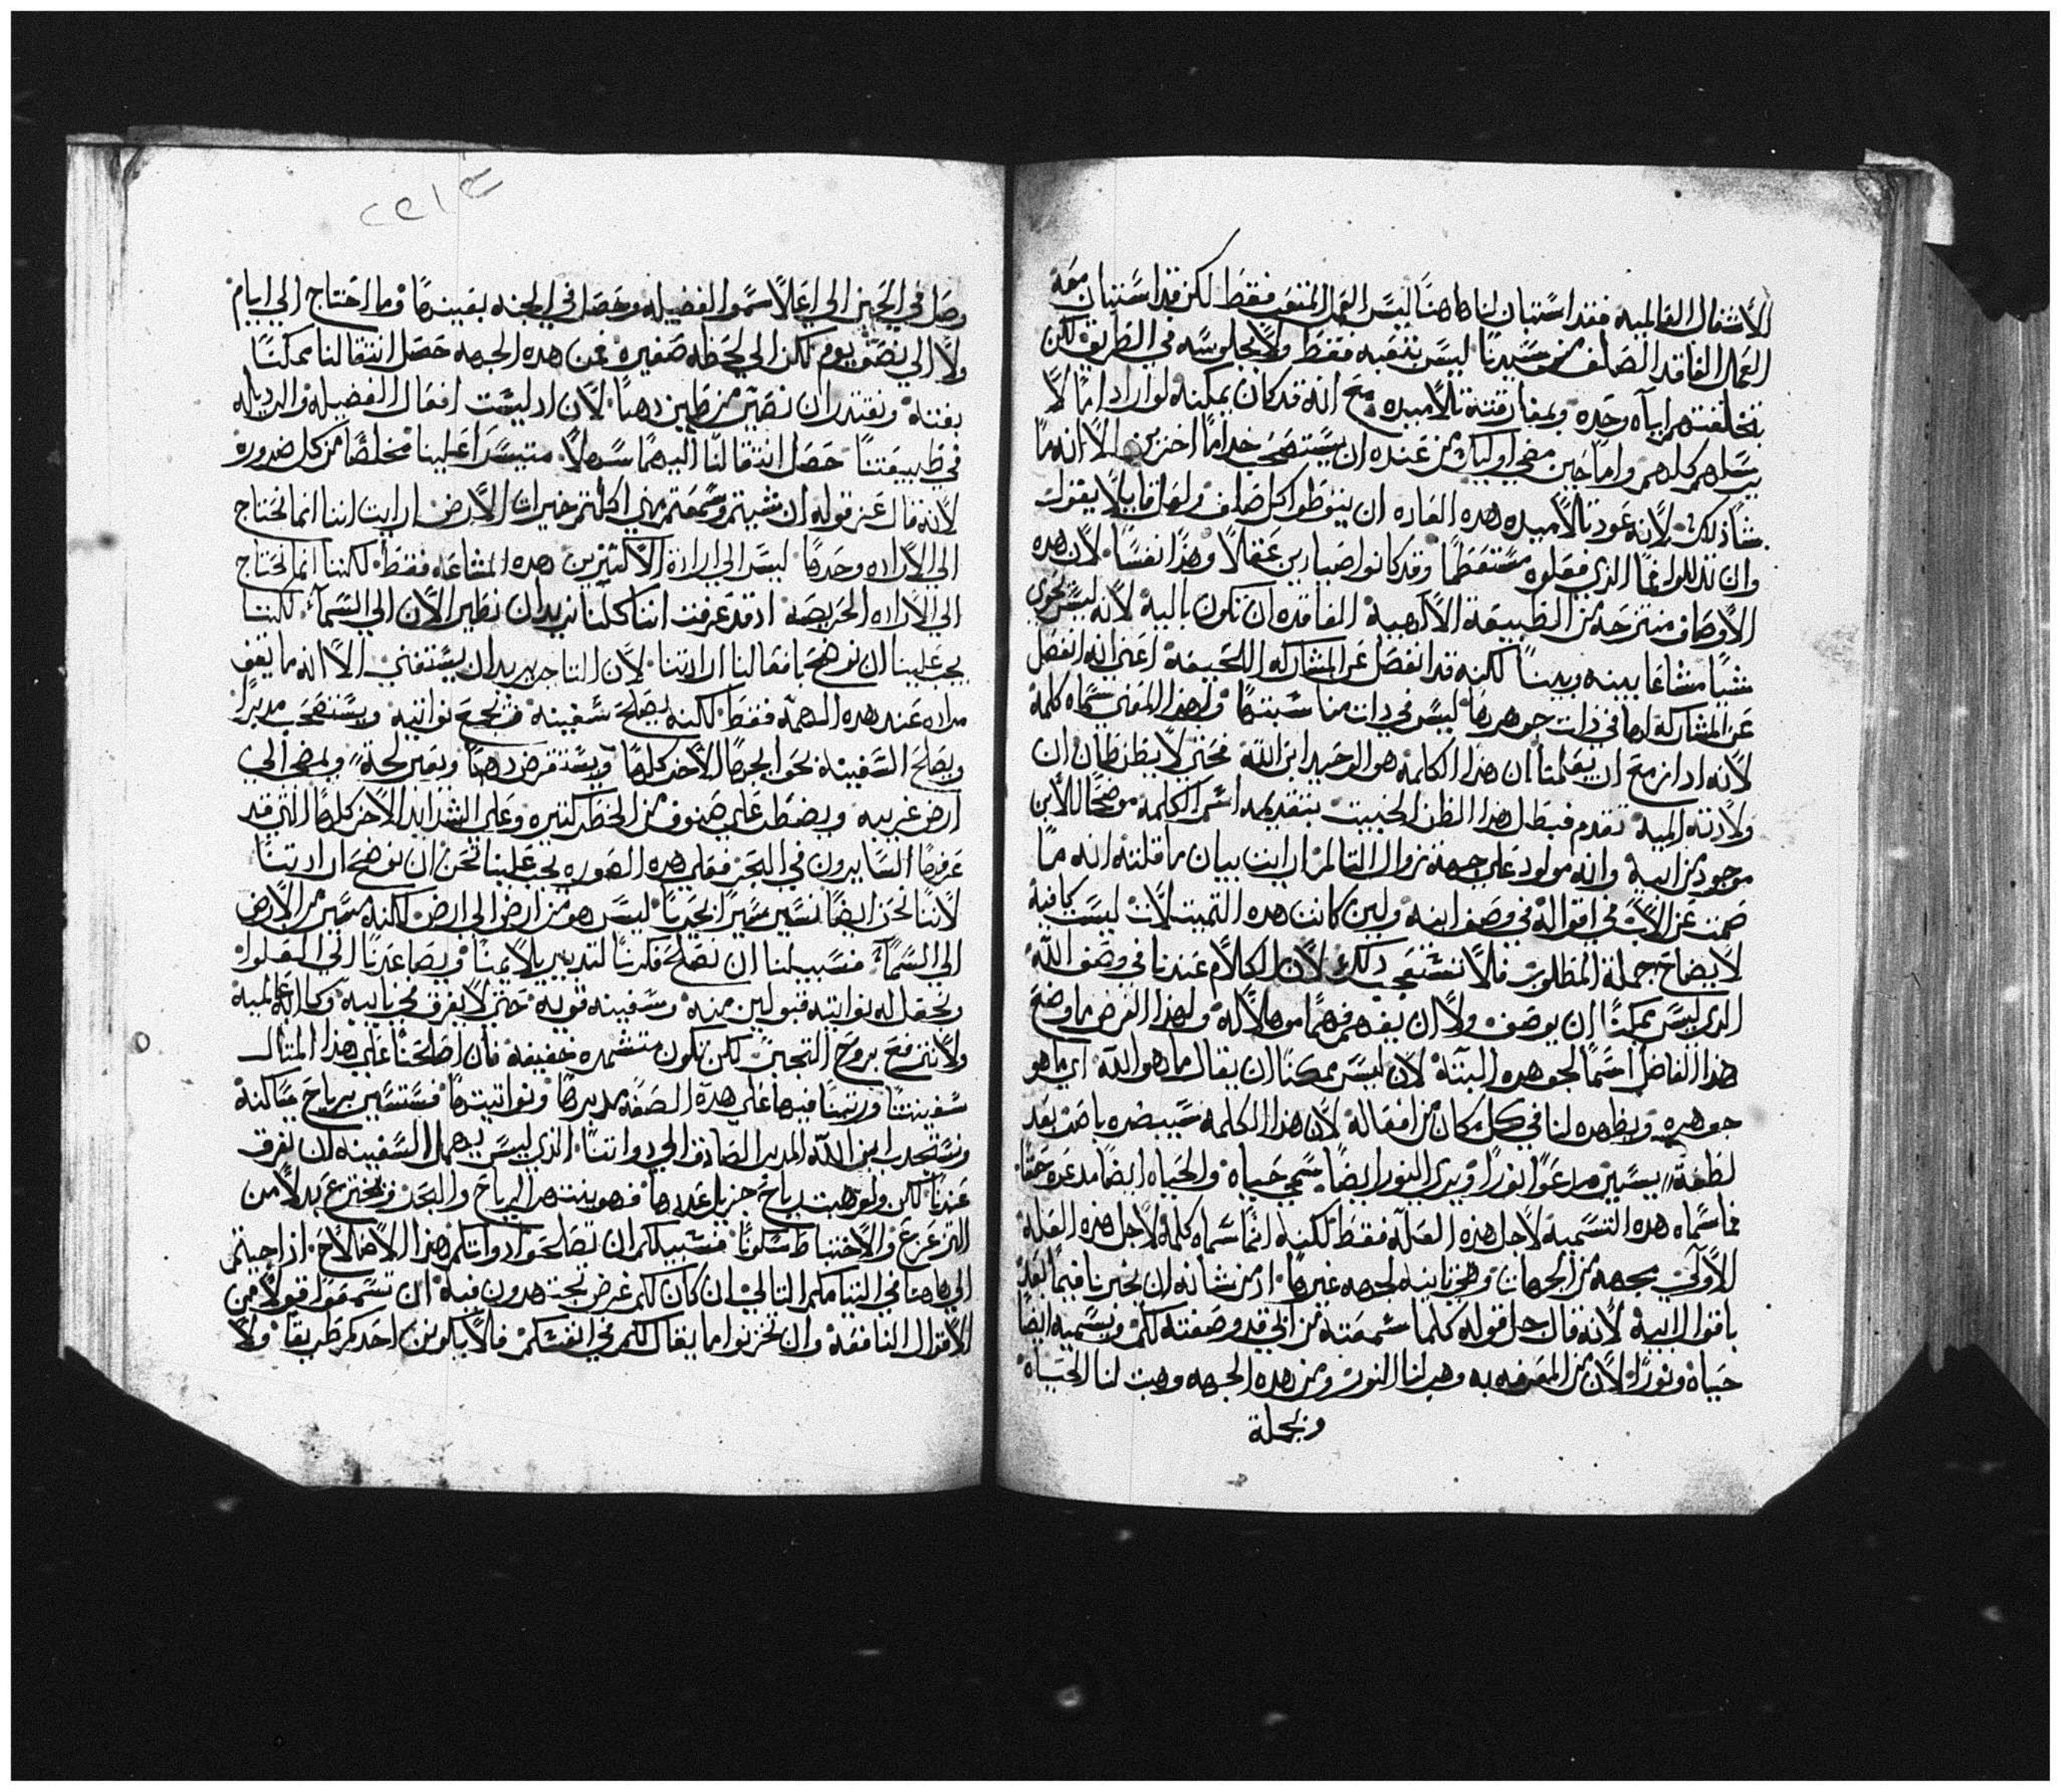 الأشغال العالميه فقد استبان لنا هاهنا ليس العمل المتعب فقط لكن قد استبان معه
العمل الفاقد الصلف من سيدنا ليس بتعبه فقط ولا بجلوسه في الطريق لكن
بتخلفتهم اياه وحده وبمفارقته تلاميده مع انه قد كان يمكنه لو اراد اما لا
يرسلهم كلهم واما حين مضي اوليك من عنده ان يستصحب خداما اخرين الا انه ما
شا ذلك لانه عود تلاميده هده العاده ان يتوطوا كل صلف ولعل قايلا يقول
وان تدللوا فما الذي فعلوه مستعظما وقد كانوا صيادين
الأوصاف منتزحه من الطبيعة الألهية الفاقده ان تكون باليه لانه ليس يحوي
شيا مشاعا بينه وبيننا لكنه قد انفصل عن المشاركه اللحيفة اعني انه انفصل
عن المشاركة لها في ذات جوهرها ليس في ذات مناسبتها ولهذا المعني سماه كلمة
لانه اد ازمع ان يعلمنا ان هذا الكلمة هو الوحيد ابن الله فحتي لا يظن ظان ان
ولادته الميه تقدم فبطل هذا الظن الخبيث بتقديمه اسم الكلمة موضحا للابن
موجود من ابيه وانه مولود علي جهة زوال التالم ارايت بيان ما قلته انه ما
صمت عن الاب في اقواله في وصف ابنه ولين كانت هده التمثيلات ليست كافية
لايضاح جملة المطلوب فلا تستعجب دلك لان الكلام عندنا في وصف الله
الدي ليس يمكنا ان يوصف ولا ان يفهم فهما موهلا له ولهذا الغرض ما وضع
هدا الفاضل اسما لجوهره البتة لان ليس ممكنا ان يقال ما هو الله اي ما هو
جوهره ويظهره لنا في كل مكان من افعاله لان هذا الكلمة سيبصره باصر بعد
لحظة يسير مدعوا نورا ويري النور ايضا يسمي حياة والحياه ايضا مدعوه حقا
فما سماه هده التسمية لاجل هذه العله فقط لكنه انما سماه كلمة لاجل هذه العلة
الاولي بجهة من الجهات وفي ثانية لجهه غيرها اد من شانه ان يخبرنا فيما بعد
باقوال ابيه لانه قال جل قوله كلما سمعته من ابي قد وصفته لكم ويسميه ايضا
حياة ونورا لان من المعرفه به وهب لنا النور ومن هده الجهه وهبت لنا الحياة
وبجملة
وصل في الحين الي اعلا سموا الفضيله وحصل في الجنه بعينها وما احتاج الي ايام
ولا الي نصف يوم لكن الي لحظه صغيره فمن هده الجهه حصل انتقالنا ممكنا
بغتة ونقتدر ان نصير من طين دهبا لان اد ليست افعال الفضيله والرديله
في طبيعتنا حصل انتقالنا اليهما سهلا متيسرا علينا مخلصا من كل ضروره
لانه قال عز قوله ان شيتم وسمعتم مني اكلتم خيرات الارض ارايت اننا انما نحتاج
الي الاراده وحدها ليس الي ارادة الاكثرين هده المشاعه فقط لكننا انما نحتاج
الي الاراده الحريصه اد قد عرفت اننا كلنا نريد ان نطير الان الي السما لكننا
يجب علينا ان نوضح بافعالنا ارادتنا لان التاجر يريد ان يستغني الا انه ما يقف
مراده عند هده الهمة فقط لكنه يصلح سفينة ويجمع نواتيه ويستصحب مدبرا
ويصلح السفينه بحوايجها الاخر كلها ويستقرض دهبا ويعبر لجة ويمضي الي
ارض غريبه ويضطر علي صنوف من الخطر كثيره وعلي الشدايد الاخر كلها التي قد
عرفها السايرون في البحر فعلي هده الصوره يجب علينا نحن ان نوضح ارادتنا
لاننا نحن ايضا نسير سيرا بحريا ليس هو من ارض الي ارض لكنه مسير من الارض
الي السما فسبيلنا ان نصلح فكرنا لتدبير يلايمنا ويصاعدنا الي العلوا
ونجعل له نواتيه قبولين منه وسفينه قوية حتي لا يغرق
ولا نرتفع بروح التجبر لكن تكون متشمره خفيفة فان اصلحنا علي هذا المثال
سفينتنا ورتبنا فيها علي هده الصفه مدبرها ونواتيتها فستسير برياح
ونستجدب ابن الله المدبر الصادق الي دواتنا الذي ليس يهمل السفينه ان تغرق
عندنا لكن ولو هبت رياح جزيل عددها فهو ينتهر الرياح والبحر ويخترع بدلا من
التزعزع والاختباط سكونا فسبيلكم ان تصلحوا دواتكم هذا الاصلاح ادا جيتم
الي هاهنا في التيامكم التالي ان كان لكم غرض تجتهدون فيه ان تسمعوا قولا من
الاقوال النافعة وان تخزنوا ما يقال لكم في انفسكم فلا يكونن احدكم طريقا ولا